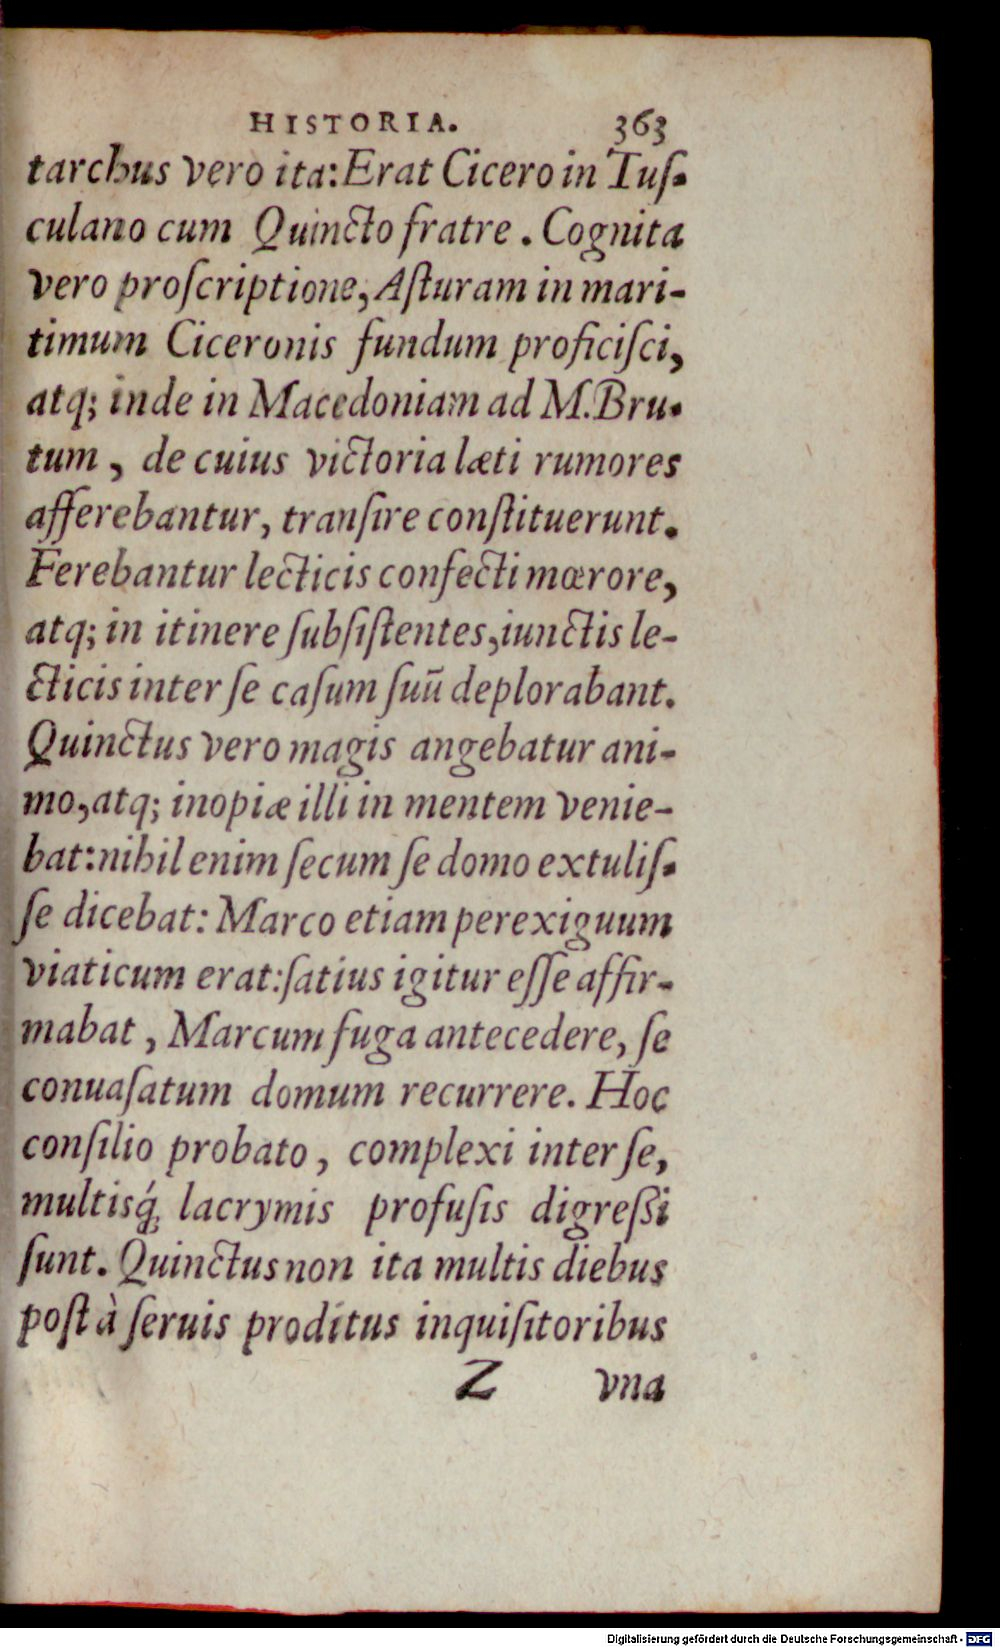 HISTORIA. 363
tarchus vero ita: Erat Cicero in Tuſ-
culano cum Quincto fratre. Cognita
vero proſcriptione, Aſturam in mari-
timum Ciceronis fundum proficiſci,
atq; inde in Macedoniam ad M. Bru-
tum, de cuius victoria læti rumores
afferebantur, tranſire conſtituerunt.
Ferebantur lecticis confecti mœrore,
atq; in itinere ſubſiſtentes, iunctis le-
cticis inter ſe caſum ſuū deplorabant.
Quinctus vero magis angebatur ani-
mo, atq; inopiæ illi in mentem venie-
bat: nihil enim ſecum ſe domo extuliſ-
ſe dicebat: Marco etiam perexiguum
viaticum erat: ſatius igitur eſſe affir-
mabat, Marcum fuga antecedere, ſe
conuaſatum domum recurrere. Hoc
conſilio probato, complexi inter ſe,
multisq́; lacrymis profuſis digreſſi
ſunt. Quinctus non ita multis diebus
poſt à ſeruis proditus inquiſitoribus
Z vna
Digitalisierung gefördert durch die Deutsche Forschungsgemeinschaft - DFG